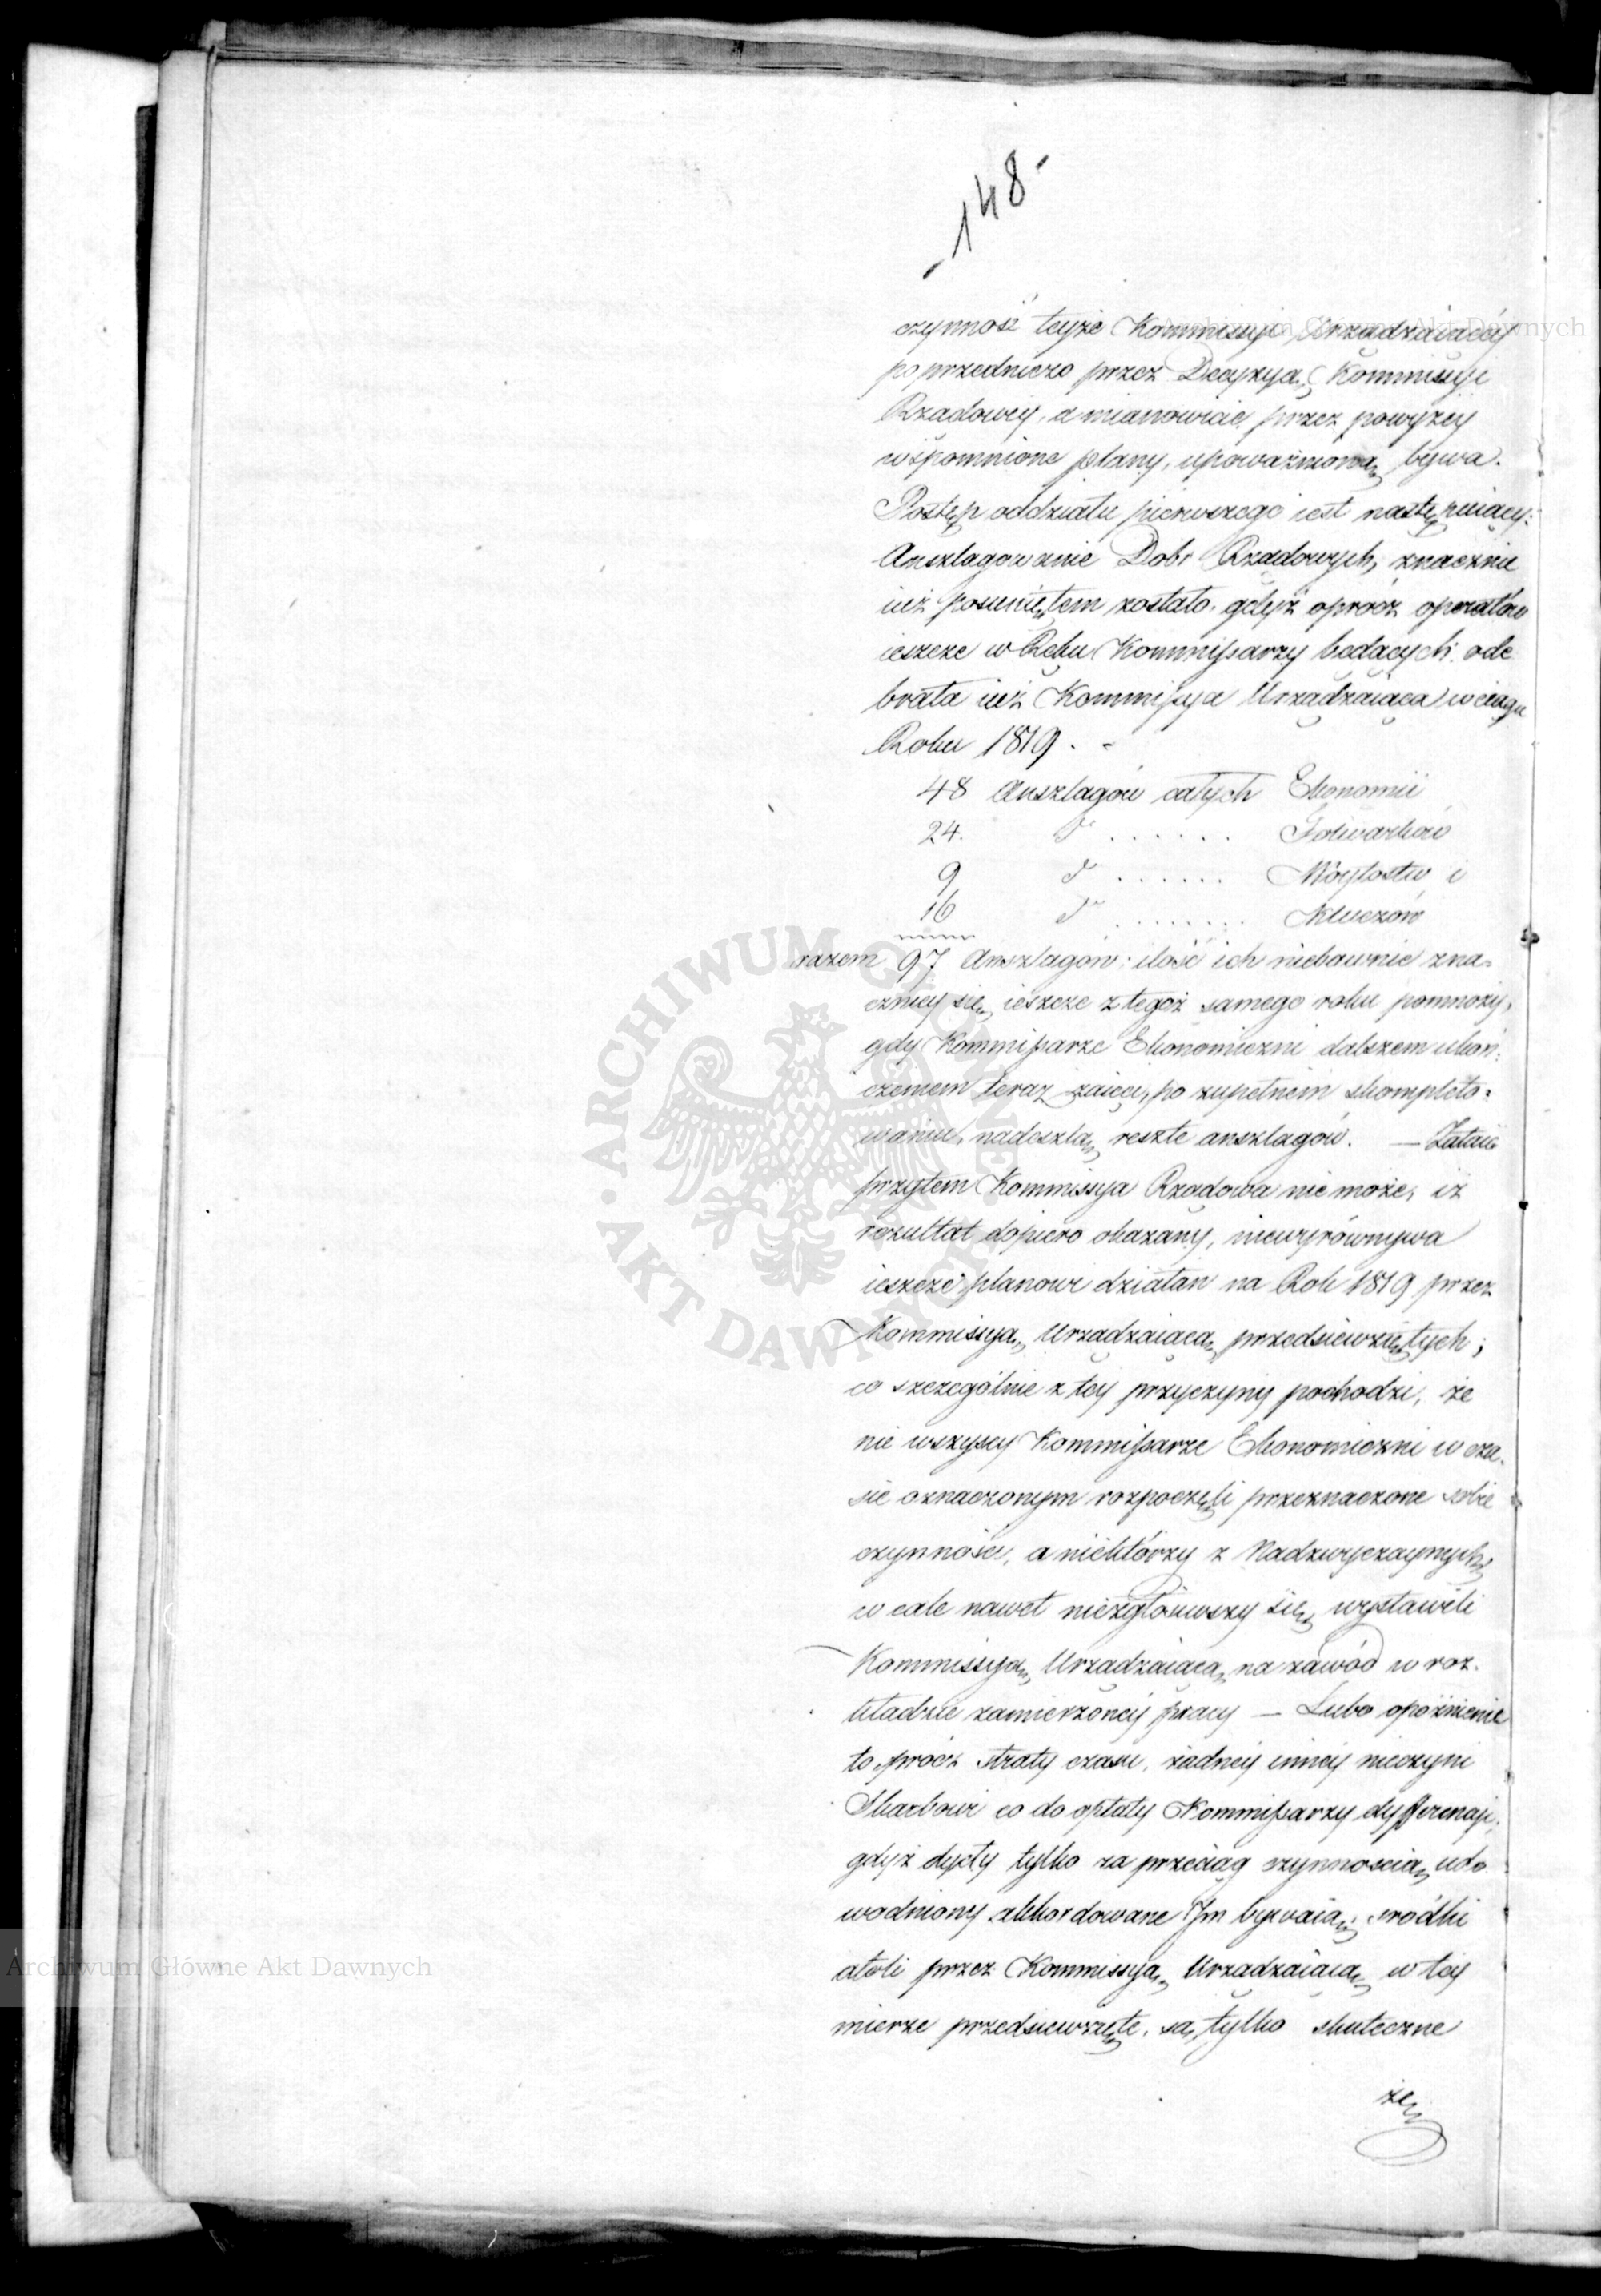 - 148 -
czynność teyże Kommissyi Urządzaiącéy
poprzedniczo przez Decyzyą Kommissyi
Rządowéy, a mianowicie przez powyżéy
wspomnione plany, upoważnioną bywa.
Postęp oddziału pierwszego iest następuiący:
Anszlagowanie Dobr Rządowych, znacznie
iuż posuniętem zostało, gdyż oprócz operatów
ieszcze w Ręku Kommissarzy będących ode
brała iuż Kommissya Urządzaiąca w ciągu
Roku 1819. -
48 Anszlagów całych Ekonomii
24. d° ...... Folwarków
9 d° ...... Wóytostw i
16 d° ....... Kluczów
razem 97 Anszlagów: ilość ich niebawnie zna-
czniey się ieszcze z tegoż samego roku pomnoży,
gdy Kommissarze Ekonomiczni dalszem ukoń-
czeniem teraz zaięci, po zupełnim skompleto-
waniu, nadeszlą resztę anszlagów. — Zataić
przytem Kommissya Rządowa nie może, iż
rezultat dopiero okazany, niewyrównywa
ieszcze planowi działań na Rok 1819 przez
Kommissyą Urządzaiącą przedsięwziętych;
co szczególnie z téy przyczyny pochodzi, że
nie wszyscy Kommissarze Ekonomiczni w cza-
sie oznaczonym rozpoczęli przeznaczone sobie
czynności, a niektórzy z Nadzwyczaynych
w cale nawet niezgłosiwszy się, wystawili
Kommissyą Urządzaiącą na zawód w roz-
kładzie zamierzonéy pracy — Lubo opóźnienie
to prócz straty czasu, żadnéy innéy nieczyni
Skarbowi co do opłaty Kommissarzy dyfferencyi,
gdyż dyety tylko za przeciąg czynnością udo
wodniony akkordowane Im bywaią; środki
atoli przez Kommissyą Urządzaiącą w téy
mierze przedsięwzięte, są tylko skuteczne
że
Archiwum Główne Akt Dawnych
Archiwum Główne Akt Dawnych
ARCHIWUM GŁÓWNE AKT DAWNYCH